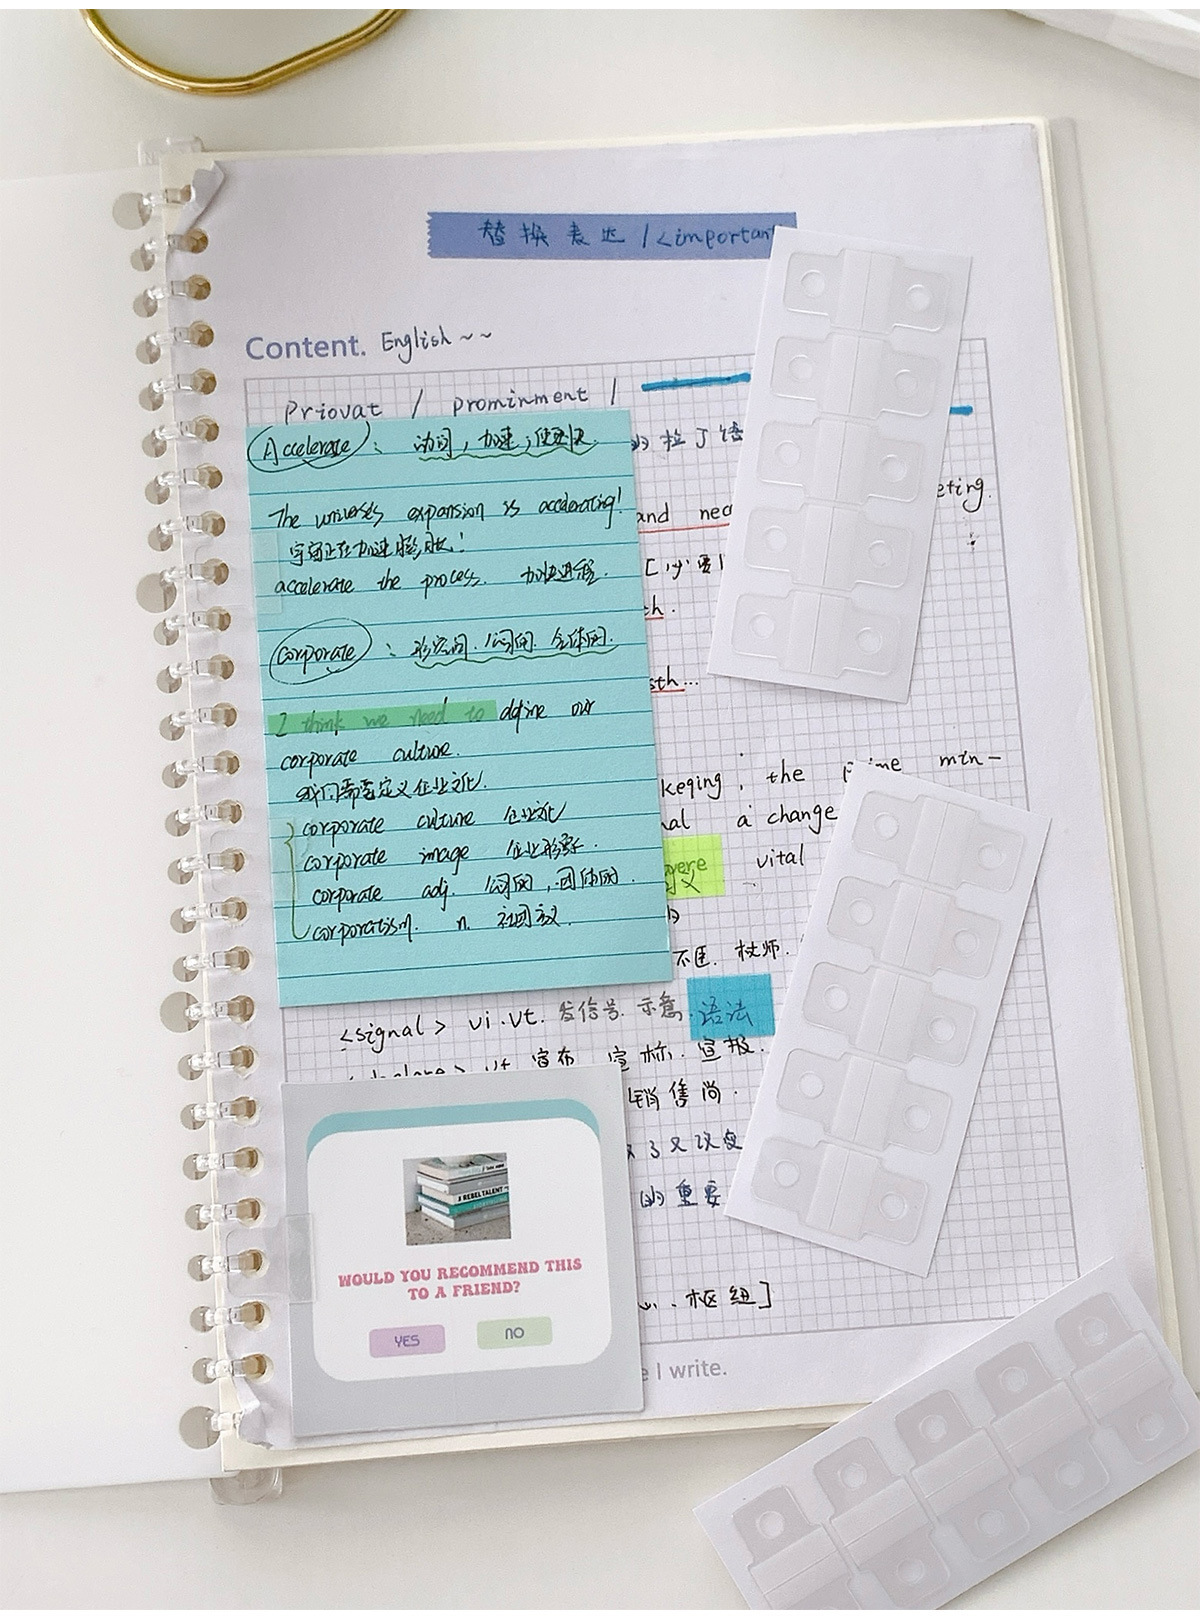 替换表达/<important
Content. English ~~
Priovat / prominment /
Accelerate : 动词,加速;使更快.
的拉丁语
The universes expansion is accelerating!
eting.
and nec
宇宙正在加速膨胀!
accelerate the process. 加快进程.
[少要]
th.
corporate : 形容词. 公司的. 全体的.
sth...
I think we need to define our
corporate culture.
我们需要定义企业文化.
keqing , the prime min-
nal a change
corporate culture 企业文化
corporate image 企业形象.
vere vital
义
corporate adj. 公司的,团体的.
corporatism. n. 社团主义.
不匡. 杖师.
<signal> vi.vt. 发信号. 示意. 语法
<declare> vt. 宣布 宣称. 宣报.
销售尚.
3 又议变
的重要
REBEL TALENT
WOULD YOU RECOMMEND THIS
TO A FRIEND?
YES NO
. 枢纽]
e I write.